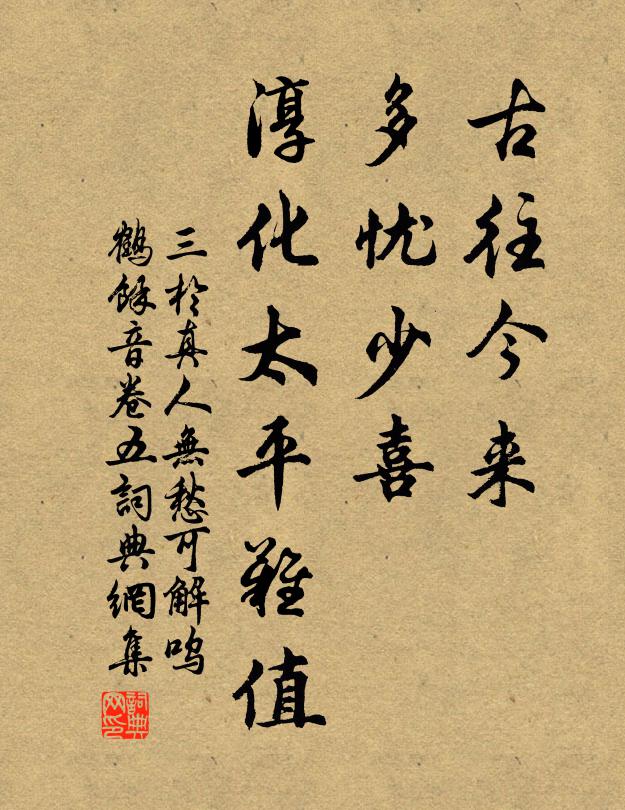 古往今来
多忧少喜
淳化太平難值
三於真人無愁可解鸣
鶴餘音卷五詞典網集
詞典
网印